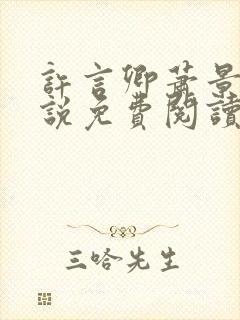 許言卿蕭景
說免費閱讀
三哈先生